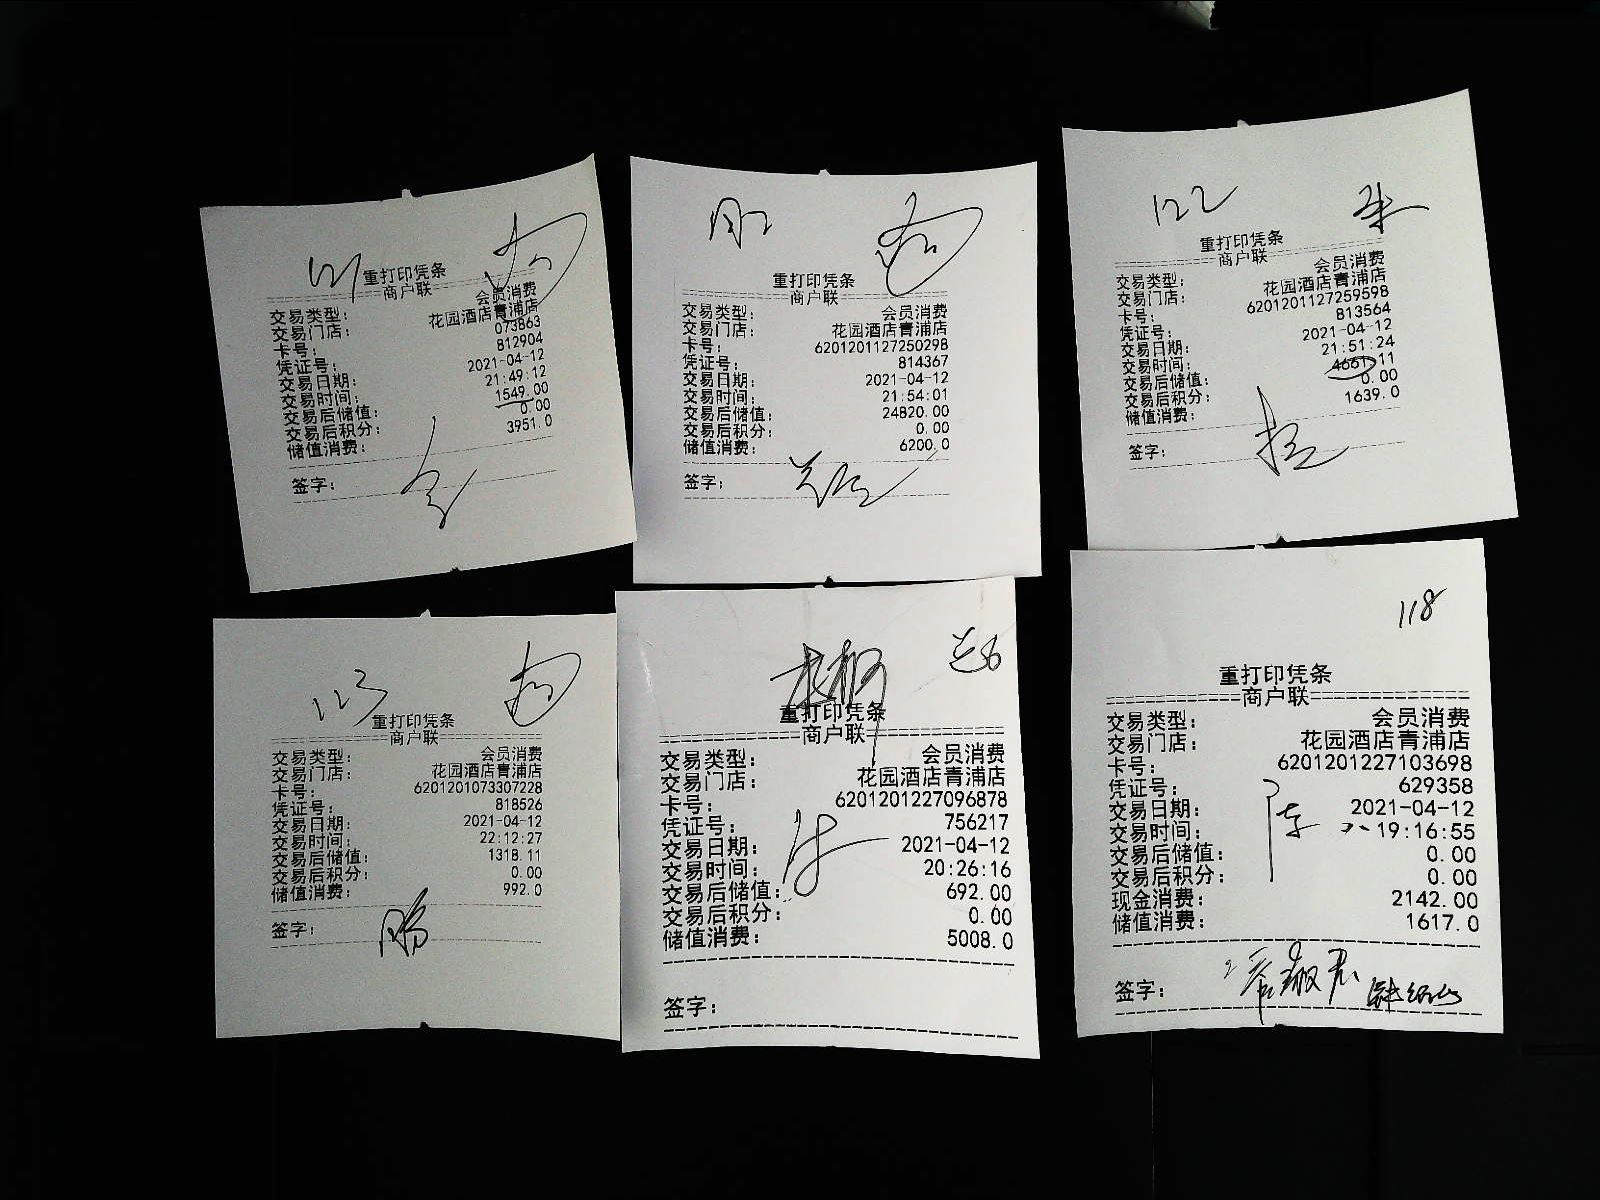 121
重打印凭条
商户联
交易类型： 会员消费
交易门店： 花园酒店青浦店
卡号： 073863
凭证号： 812904
交易日期： 2021-04-12
交易时间： 21:49:12
交易后储值： 1549.00
交易后积分： 0.00
储值消费： 3951.0
签字：
重打印凭条
商户联
交易类型： 会员消费
交易门店： 花园酒店青浦店
卡号： 6201201127250298
凭证号： 814367
交易日期： 2021-04-12
交易时间： 21:54:01
交易后储值： 24820.00
交易后积分： 0.00
储值消费： 6200.0
签字：
122
重打印凭条
商户联
交易类型： 会员消费
交易门店： 花园酒店青浦店
卡号： 6201201127259598
凭证号： 813564
交易日期： 2021-04-12
交易时间： 21:51:24
交易后储值： 4661.11
交易后积分： 0.00
储值消费： 1639.0
签字：
123
重打印凭条
商户联
交易类型： 会员消费
交易门店： 花园酒店青浦店
卡号： 6201201073307228
凭证号： 818526
交易日期： 2021-04-12
交易时间： 22:12:27
交易后储值： 1318.11
交易后积分： 0.00
储值消费： 992.0
签字：
重打印凭条
商户联
交易类型： 会员消费
交易门店： 花园酒店青浦店
卡号： 6201201227096878
凭证号： 756217
交易日期： 2021-04-12
交易时间： 20:26:16
交易后储值： 692.00
交易后积分： 0.00
储值消费： 5008.0
签字：
118
重打印凭条
商户联
交易类型： 会员消费
交易门店： 花园酒店青浦店
卡号： 6201201227103698
凭证号： 629358
交易日期： 2021-04-12
交易时间： 19:16:55
交易后储值： 0.00
交易后积分： 0.00
现金消费： 2142.00
储值消费： 1617.0
签字：